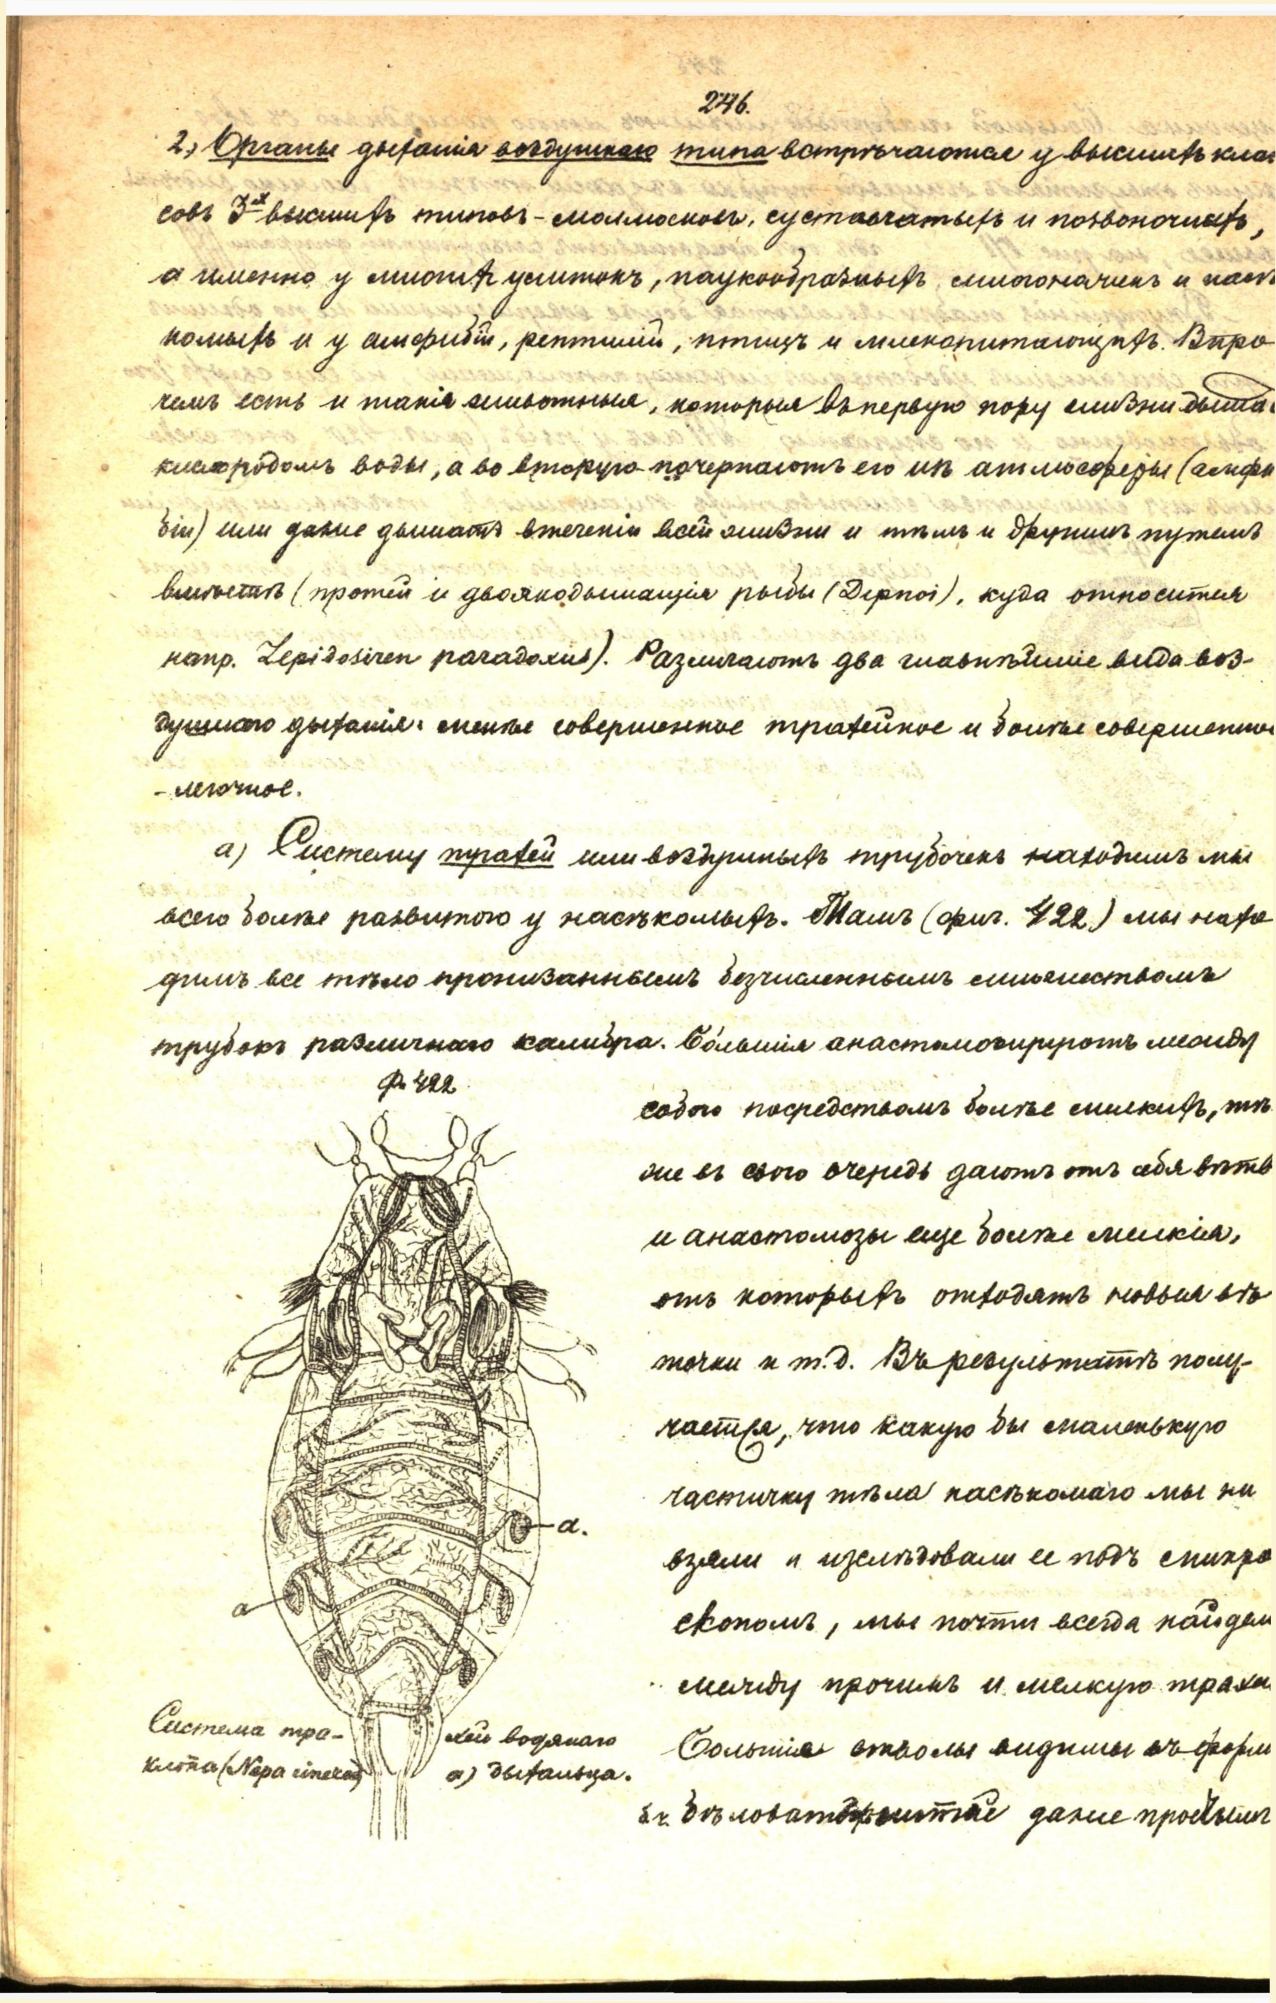 246.
2, Органы дыханія воздушнаго типа встрѣчаются у высшихъ клас
совъ 3-хъ высшихъ типовъ – моллюсковъ, суставчатыхъ и позвоночныхъ,
а именно у многихъ улитокъ, паукообразныхъ, многоножекъ и насѣ
комыхъ и у амфибій, рептилій, птицъ и млекопитающихъ. Впро
чемъ есть и такія животныя, которыя въ первую пору жизни дыша
кислородомъ воды, а во вторую почерпаютъ его изъ атмосферы (амфи
біи) или даже дышатъ втеченіи всей жизни и тѣмъ и другимъ путемъ
вмѣстѣ (протей и двоякодышащія рыбы (Dipnoi), куда относится
напр. Lepidosiren paradoxus). Различаютъ два главнѣйшіе вида воз-
душнаго дыханія: менѣе совершенное трахейное и болѣе совершенное
– легочное.
а) Систему трахей или воздушныхъ трубочекъ находимъ мы
всего болѣе развитою у насѣкомыхъ. Тамъ (фиг. 422) мы нахо
димъ все тѣло пронизаннымъ безчисленнымъ множествомъ
трубокъ различнаго калибра. Бо́льшія анастомозируютъ между
Ф. 422
собою посредствомъ болѣе мелкихъ, тѣ
же въ свою очередь даютъ отъ себя вѣтв
и анастомозы еще болѣе мелкія,
отъ которыхъ отходятъ новыя вѣ
точки и т. д. Въ результатѣ полу-
чается, что какую бы маленькую
частичку тѣла насѣкомаго мы ни
взяли и изслѣдовали ее подъ микро
скопомъ, мы почти всегда найдем
между прочимъ и мелкую трахе
Большіе стволы видимы въ форм
бѣловатыхъ даже простымъ
а.
а
Система тра-
хей водянаго
клопа (Nepa cinerea)
а) дыхальца.